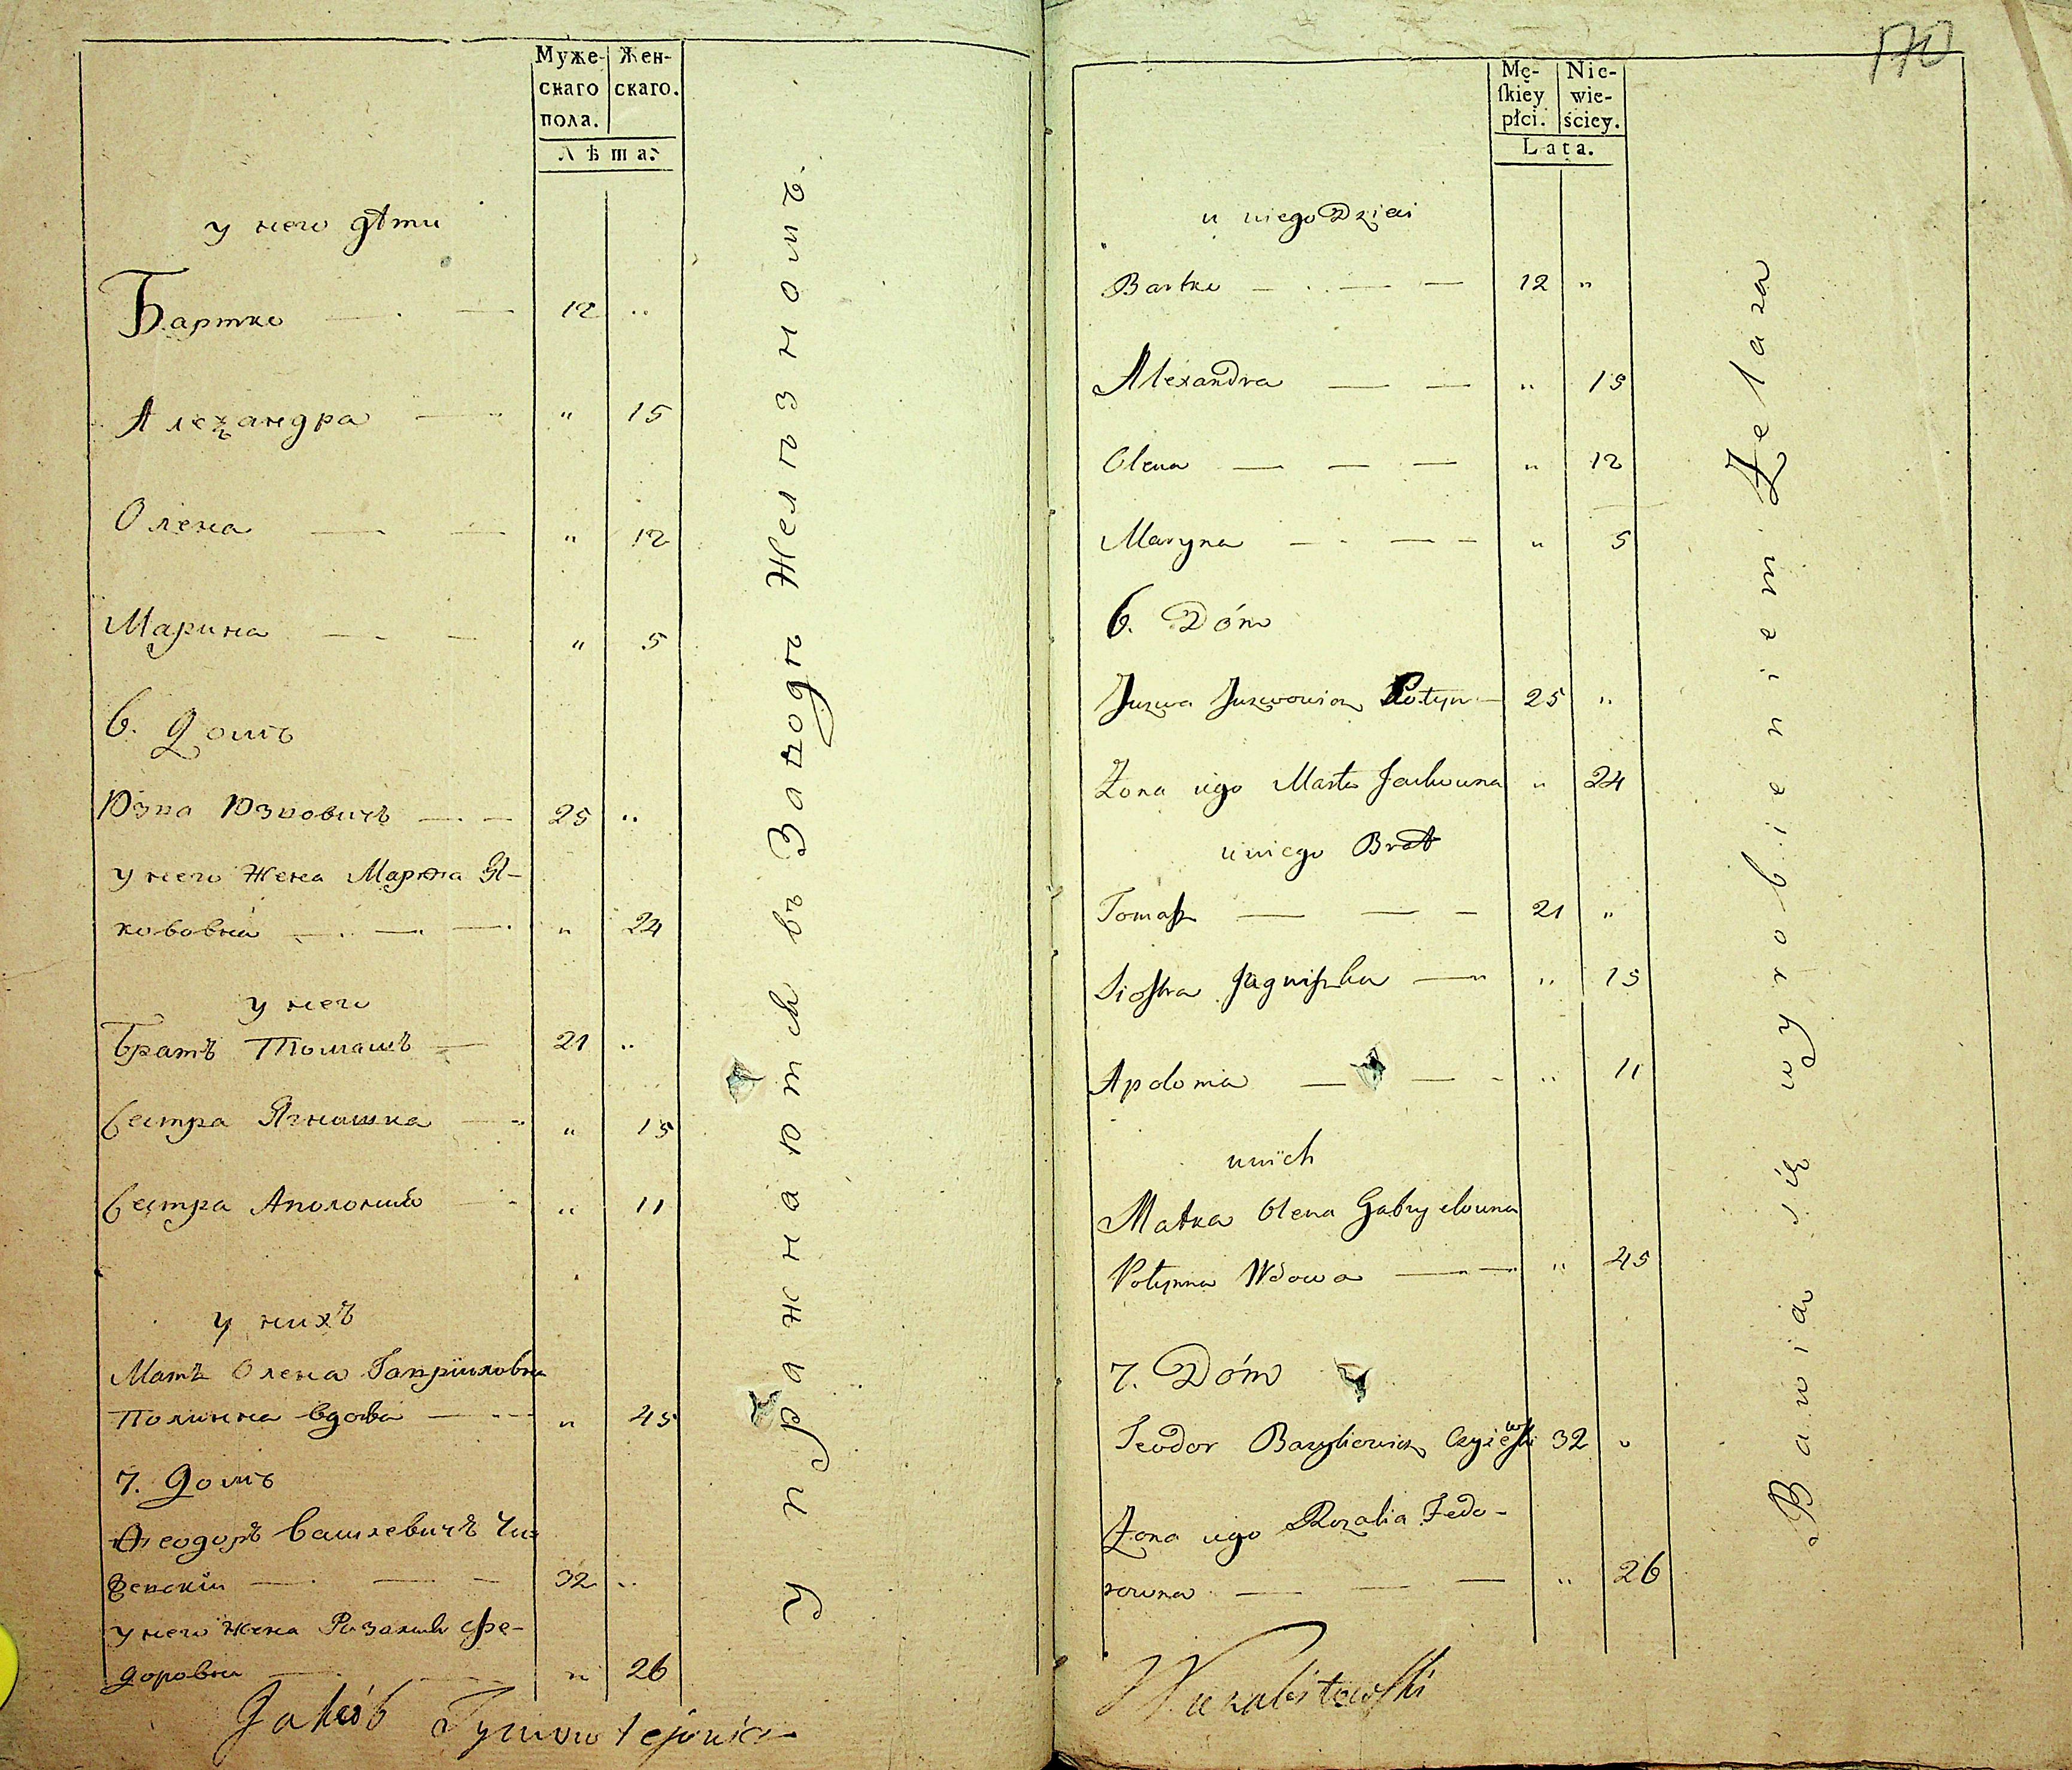 Муже- Жен-
скаго скаго.
пола.
Лѣта.
у него дѣти
Бартко — . — 12 ..
Алеxандра — " 15
Олена — — " 12
Марина — . — " 5
6. Домъ
Юзва Юзвовичъ — . — 25 ..
у него Жена Марта Я-
кововна — . — . — . " 24
у него
Братъ Томашъ — 21 ..
Сестра Ягнашка — " 15
Сестра Аполонія — " 11
у нихъ
Мать Олена Гапрiиловна
Полинна вдова — " 45
7. Домъ
Ѳеодоръ Василевичъ Чи-
жевскiй — . — — 32 ..
у него жена Розалия Фе-
доровна — . " 26
Упражнаются въ Заводѣ Желѣзномъ
Jakób
170
Mę- Nie-
skiey wie-
płci. ściey.
Lata.
u niego Dzieci
Bartko — . . — — 12 "
Alexandra — — " 15
Olena — — — " 12
Maryna — . — — " 5
6. Dóm
Juzwa Juzwowicz Połyn — 25 "
Żona iego Marta Jakowna " 24
u niego Brat
Tomasz — — — 21 "
Siostra Jagniszka — " " 15
Apolonia — — — " 11
u nich
Matka Olena Gabryelowna
Połynna Wdowa — — " 45
7. Dóm
Teodor Bazyliewicz Czyżewski 32 "
Żona iego Rozalia Fedo-
rowna — — — " 26
Bawią się wyrobieniem Żelaza